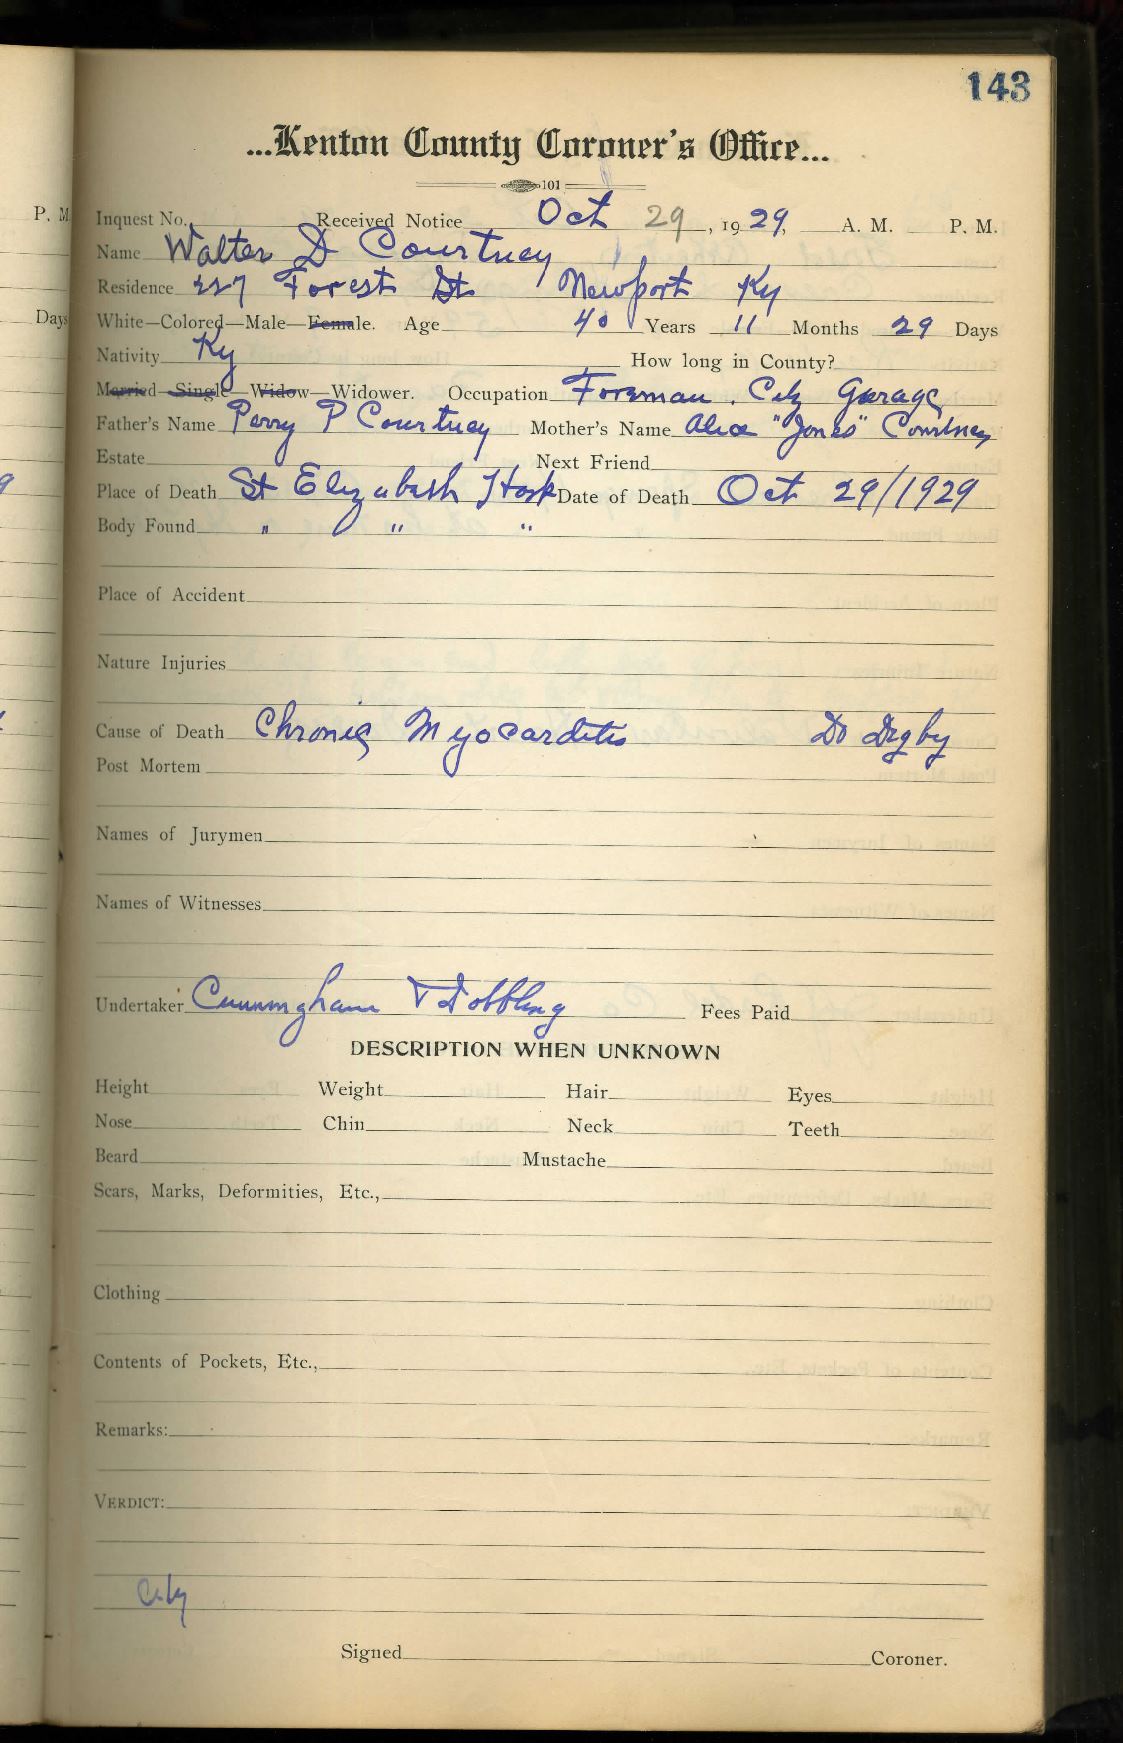 143
...Kenton County Coroner's Office...
101
P. M
Inquest No. Received Notice Oct 29, 1929, A. M. P. M.
Name Walter D Courtney
Residence 227 Forest St Newport Ky
Days
White—Colored—Male—Female. Age 40 Years 11 Months 29 Days
Nativity Ky How long in County?
Married—Single—Widow—Widower. Occupation Foreman. City Garage
Father's Name Perry P Courtney Mother's Name Alice "Jones" Courtney
Estate Next Friend
Place of Death St Elizabeth Hosp Date of Death Oct 29/1929
Body Found " " "
Place of Accident
Nature Injuries
Cause of Death Chronic Myocarditis Dr Digby
Post Mortem
Names of Jurymen
Names of Witnesses
Undertaker Cunningham & Fees Paid
DESCRIPTION WHEN UNKNOWN
Height Weight Hair Eyes
Nose Chin Neck Teeth
Beard Mustache
Scars, Marks, Deformities, Etc.,
Clothing
Contents of Pockets, Etc.,
Remarks:
VERDICT:
City
Signed Coroner.